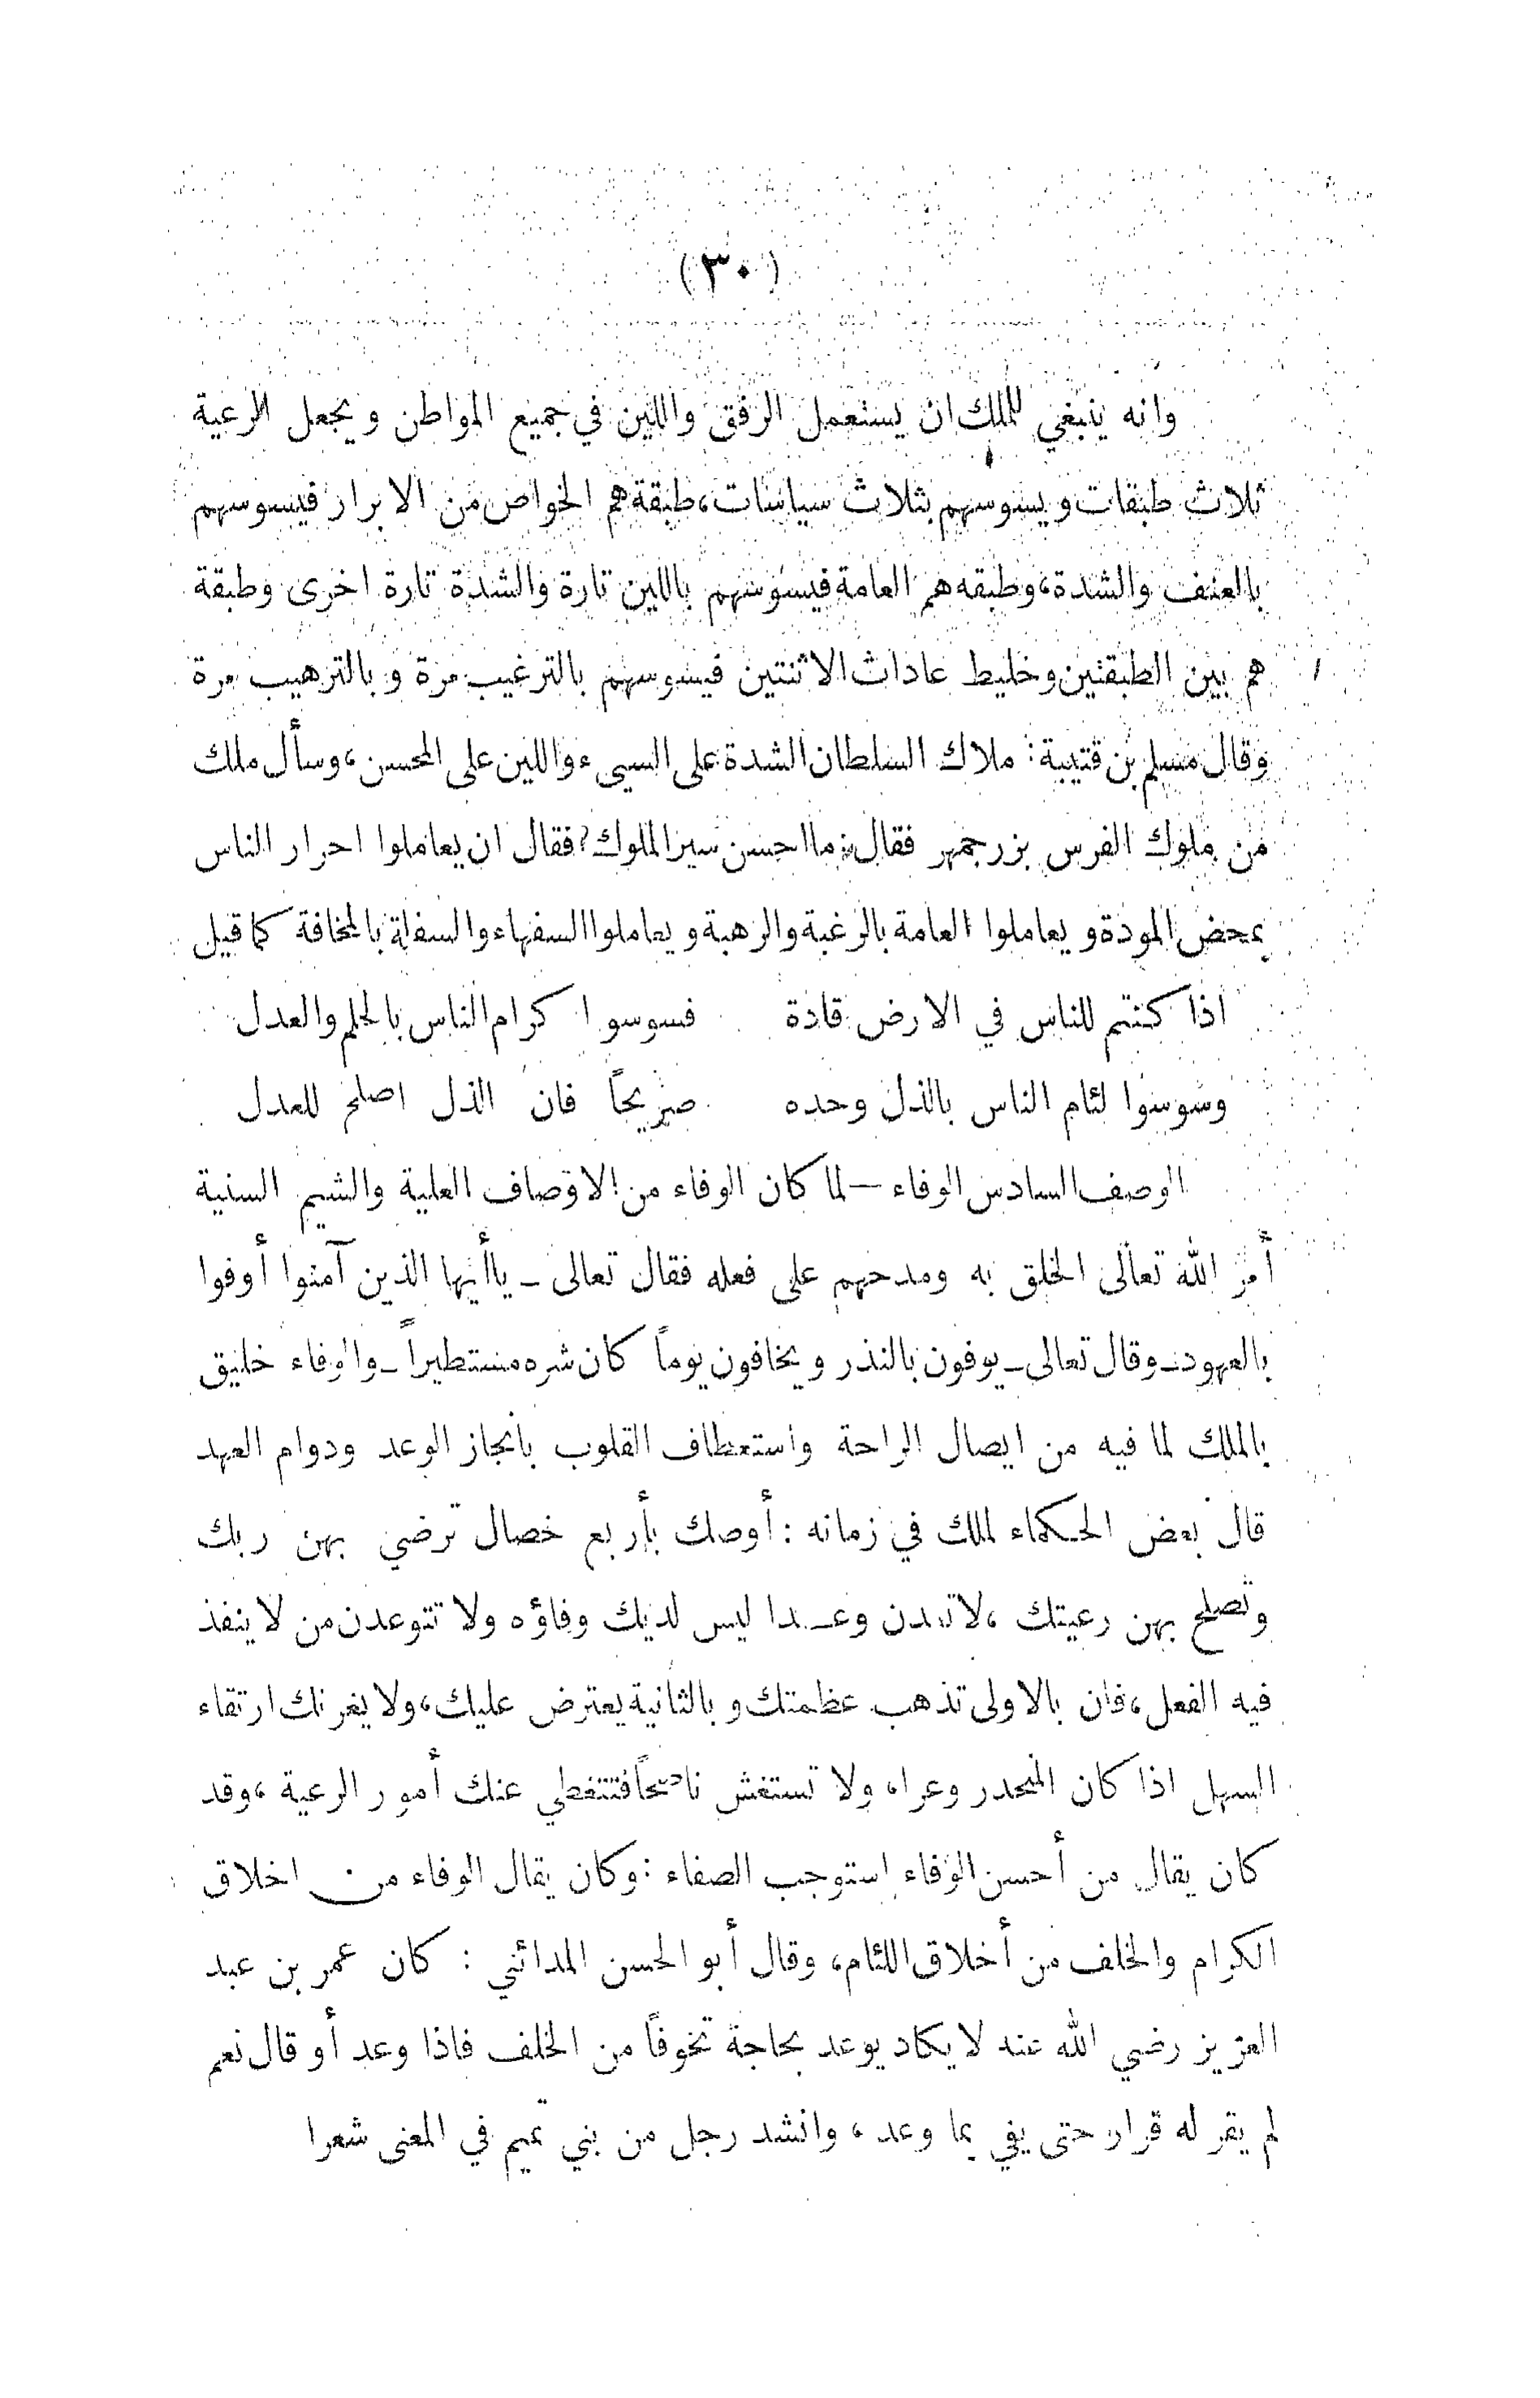 (٣٠)
وانه ينبغي للملك ان يستعمل الرفق واللين في جميع المواطن ويجعل الرعية
ثلاث طبقات ويسوسهم بثلاث سياسات، طبقة هم الخواص من الابرار فيسوسهم
بالعنف والشدة، وطبقه هم العامة فيسوسهم باللين تارة والشدة تارة اخرى وطبقة
هم بين الطبقتين وخليط عادات الاثنتين فيسوسهم بالترغيب مرة وبالترهيب مرة
وقال مسلم بن قتيبة: ملاك السلطان الشدة على السيء واللين على المحسن، وسأل ملك
من ملوك الفرس بزرجمهر فقال: ما احسن سير الملوك؟ فقال ان يعاملوا احرار الناس
بمحض المودة ويعاملوا العامة بالرغبة والرهبة ويعاملوا السفهاء والسفلة بالمخافة كما قيل
اذا كنتم للناس في الارض قادة فسوسوا كرام الناس بالحلم والعدل
وسوسوا لئام الناس بالذل وحده صريحاً فان الذل اصلح للعدل
الوصف السادس الوفاء — لما كان الوفاء من الاوصاف العلية والشيم السنية
أمر الله تعالى الخلق به ومدحهم على فعله فقال تعالى ـ ياأيها الذين آمنوا أوفوا
بالعهود ـ وقال تعالى ـ يوفون بالنذر ويخافون يوماً كان شره مستطيراً ـ والوفاء خليق
بالملك لما فيه من ايصال الراحة واستعطاف القلوب بانجاز الوعد ودوام العهد
قال بعض الحكماء لملك في زمانه : أوصك بأربع خصال ترضي بهن ربك
وتصلح بهن رعيتك ، لاتعدن وعدا ليس لديك وفاؤه ولا تتوعدن من لا ينفذ
فيه الفعل، فان بالاولى تذهب عظمتك وبالثانية يعترض عليك، ولا يغرنك ارتقاء
السهل اذا كان المنحدر وعرا، ولا تستغش ناصحاً فتتغطي عنك أمور الرعية ، وقد
كان يقال من أحسن الوفاء استوجب الصفاء : وكان يقال الوفاء من اخلاق
الكرام والخلف من أخلاق اللئام، وقال أبو الحسن المدائني : كان عمر بن عبد
العزيز رضي الله عنه لا يكاد يوعد بحاجة تخوفاً من الخلف فاذا وعد أو قال نعم
لم يقر له قرار حتى يفي بما وعد ، وانشد رجل من بني تميم في المعنى شعرا